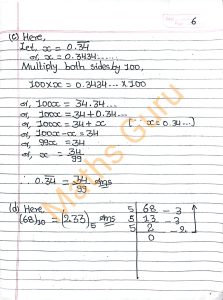 6
(c) Here,
Let, x = 0.3̅4̅
x = 0.3434......
Multiply both sides by 100,
100×x = 0.3434.... × 100
or, 100x = 34.34...
or, 100x = 34 + 0.34...
or, 100x = 34 + x [∵ x = 0.34...]
or, 100x - x = 34
or, 99x = 34
or, x = 34/99
∴ 0.3̅4̅ = 34/99 ans
(d) Here,
(68)₁₀ = (233)₅ ans
5 | 68 - 3
5 | 13 - 3
5 | 2 - 2
0
Maths Guru